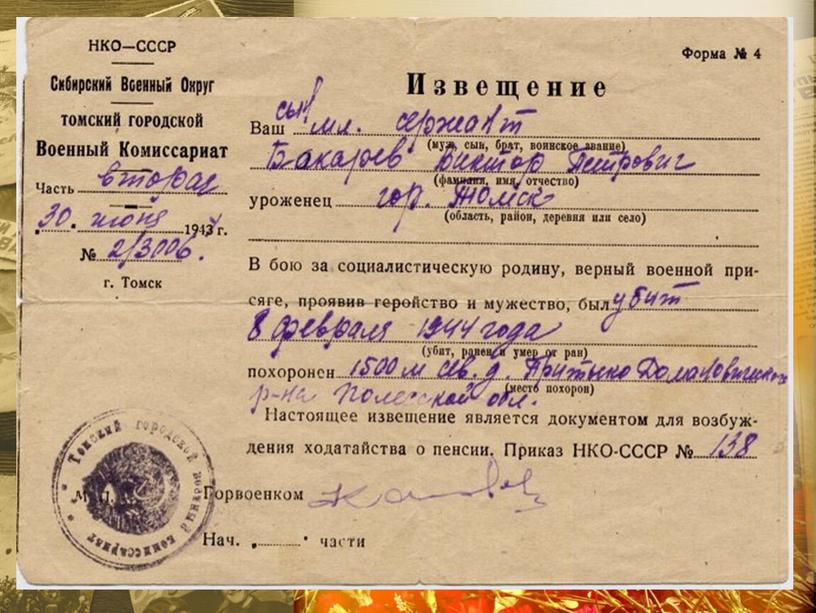 НКО—СССР
Сибирский Военный Округ
ТОМСКИЙ ГОРОДСКОЙ
Военный Комиссариат
Часть вторая
30. июня 1944 г.
№ 2/3006.
г. Томск
Форма № 4
Извещение
Ваш сын мл. сержант
(муж, сын, брат, воинское звание)
Бакарев Виктор Петрович
(фамилия, имя, отчество)
уроженец гор. Томск
(область, район, деревня или село)
В бою за социалистическую родину, верный военной при-
сяге, проявив геройство и мужество, был убит
8 февраля 1944 года
(убит, ранен и умер от ран)
похоронен 1500 м сев. д. Притыко Домановичского
(место похорон)
р-на Полесской обл.
Настоящее извещение является документом для возбуж-
дения ходатайства о пенсии. Приказ НКО-СССР № 138
М. П.
Горвоенком
Нач. части
Томский городской военный комиссариат